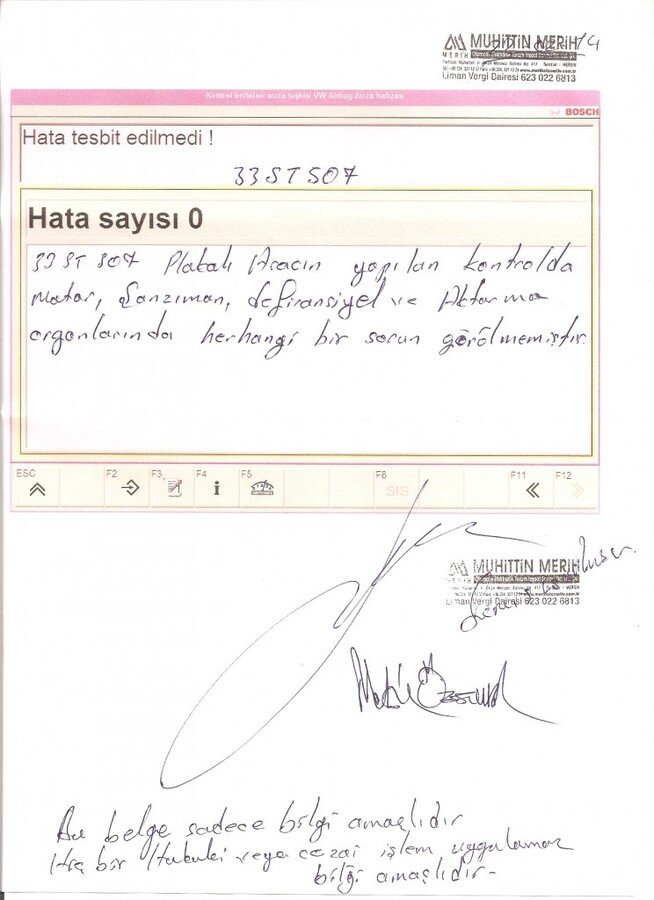 MUHİTTİN MERİH
MERİH
Liman Vergi Dairesi 623 022 6813
Kontrol üniteleri arıza teşhisi VW Airbag Arıza hafızası
BOSCH
Hata tesbit edilmedi !
33ST507
Hata sayısı 0
33 ST 507 Plakalı Aracın yapılan kontrolda
Motor, Şanzıman, defiransiyel ve Aktarma
organlarında herhangi bir sorun görülmemiştir.
ESC F2 F3 F4 F5 F8 F11 F12
i SIS
MUHİTTİN MERİH
MERİH
Liman Vergi Dairesi 623 022 6813
Bu belge sadece bilgi amaçlıdır
Hiç bir Hukuki veya cezai işlem uygulamaz
bilgi amaçlıdır-